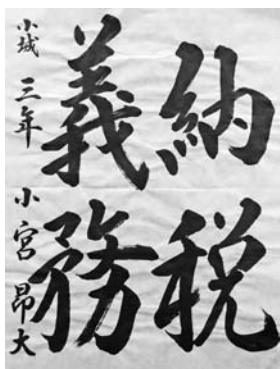 納税
義務
小城 三年 小宮昂大